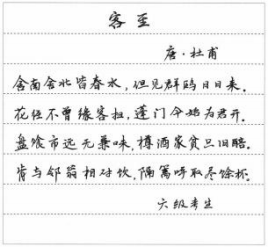 客至
唐·杜甫
舍南舍北皆春水,但见群鸥日日来。
花径不曾缘客扫,蓬门今始为君开。
盘飧市远无兼味,樽酒家贫只旧醅。
肯与邻翁相对饮,隔篱呼取尽馀杯。
六级考生